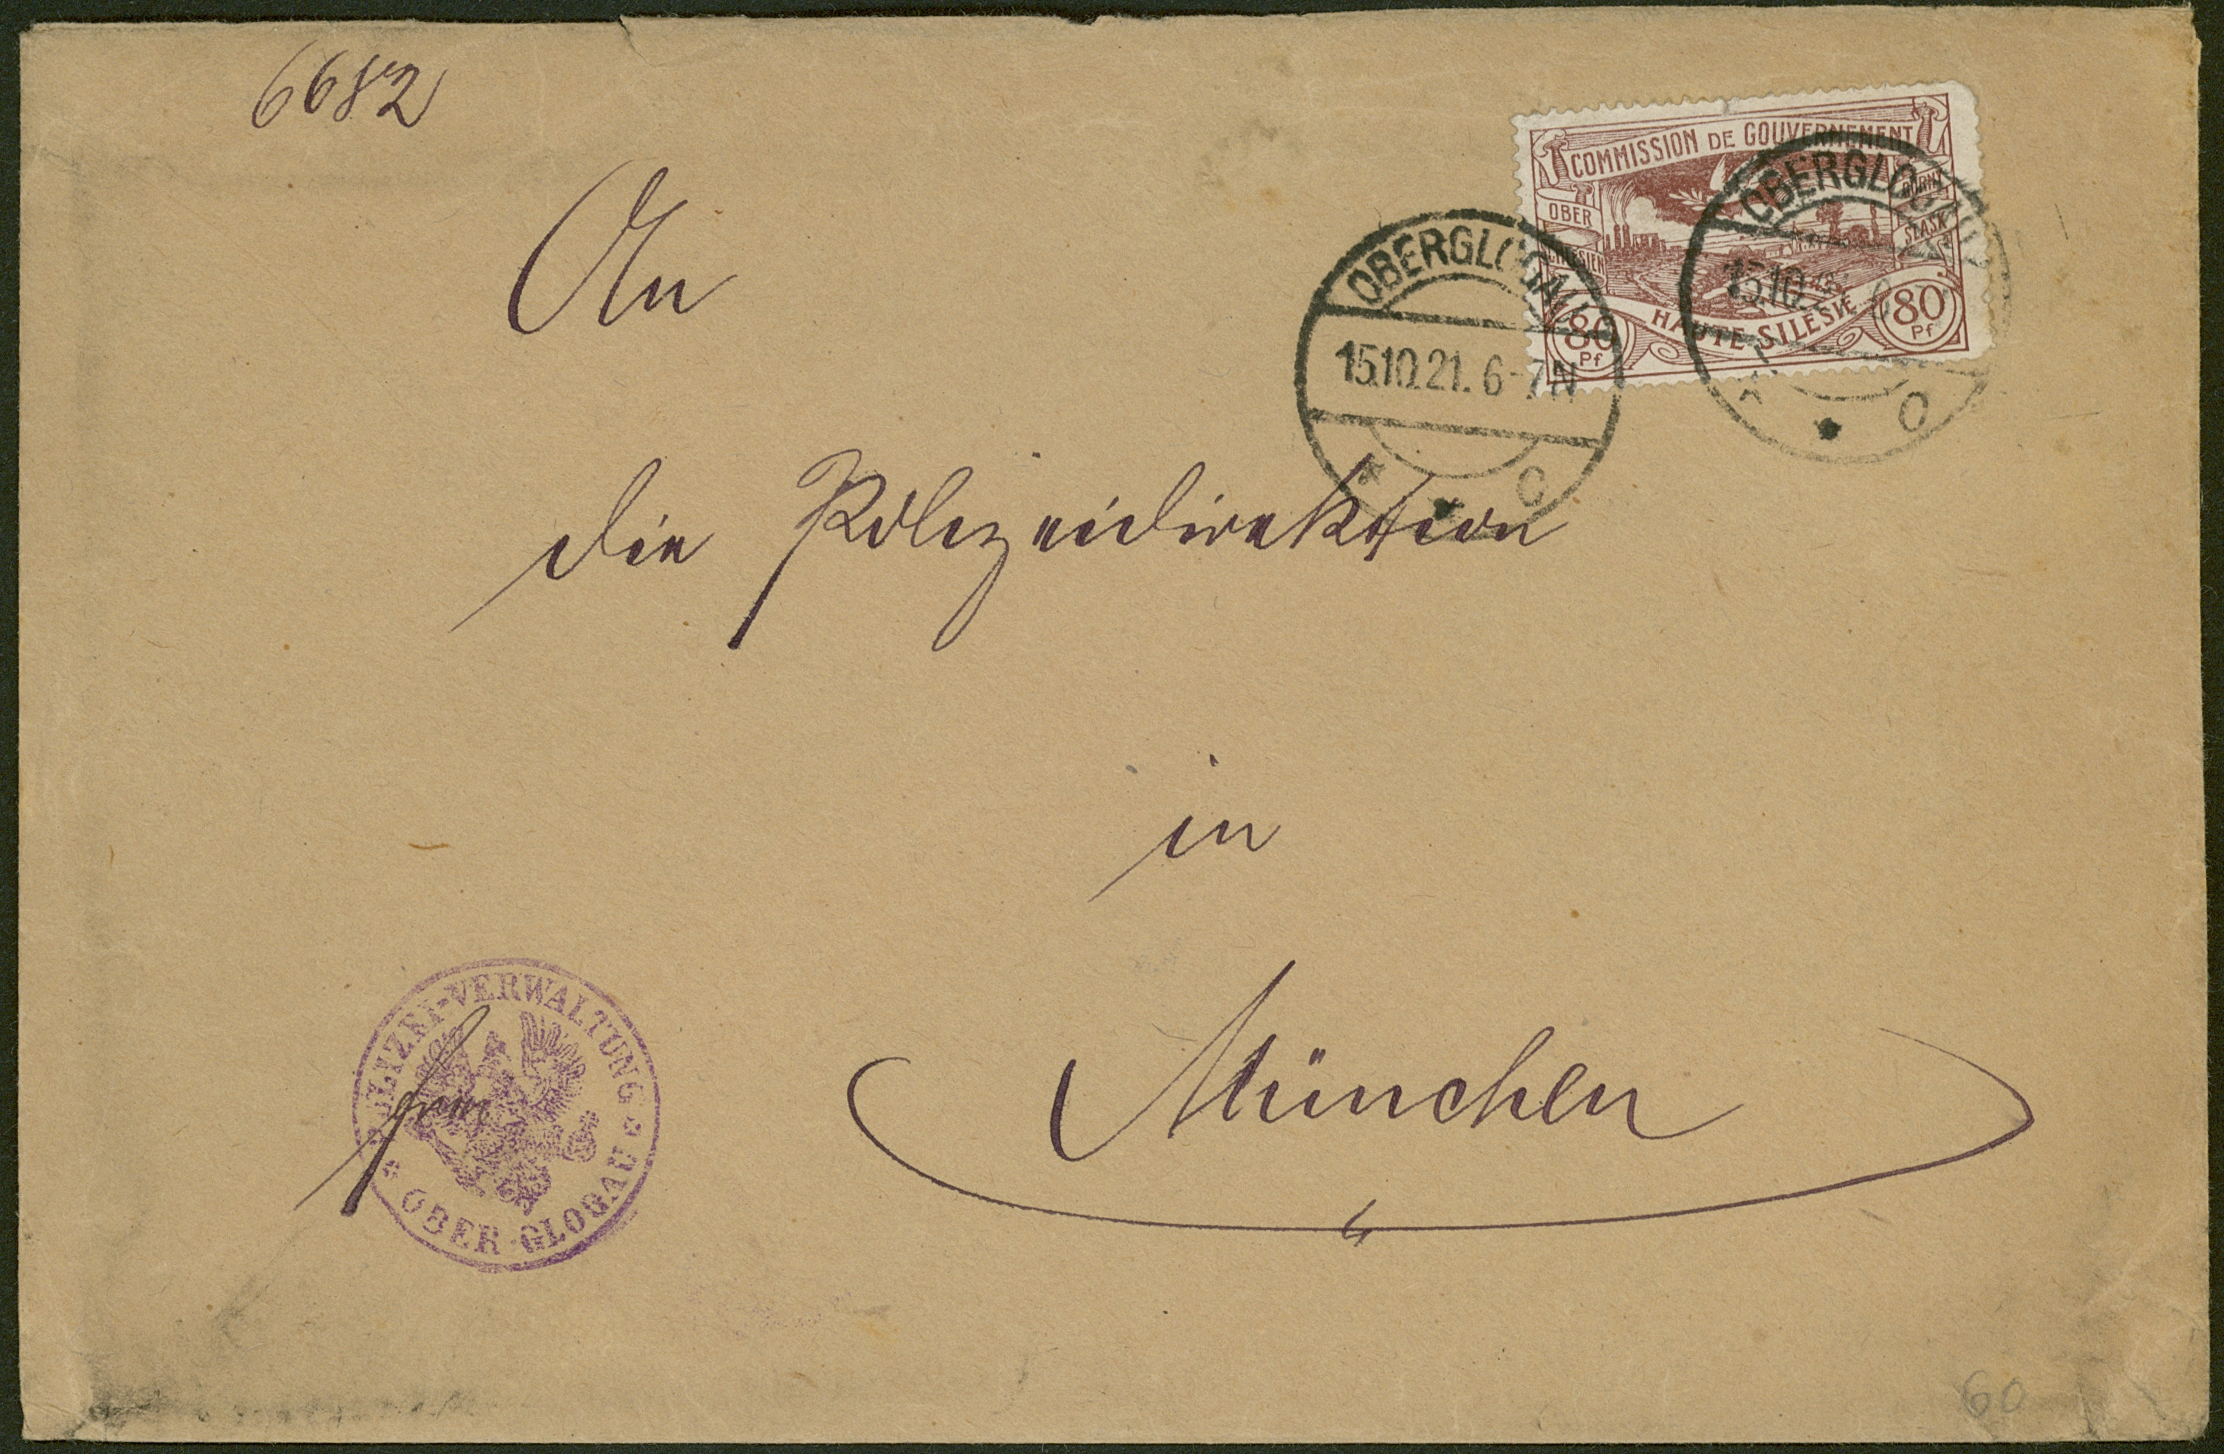 6682
COMMISSION DE GOUVERNEMENT
OBER
SCHLESIEN
GÓRNY
ŚLĄSK
HAUTE-SILESIE
80 Pf
80 Pf
OBERGLOGAU
15.10.21. 6-7N
* * c
OBERGLOGAU
15.10.
* * c
An
die Polizeidirektion
in
München
POLIZEI-VERWALTUNG
* OBER-GLOGAU *
60